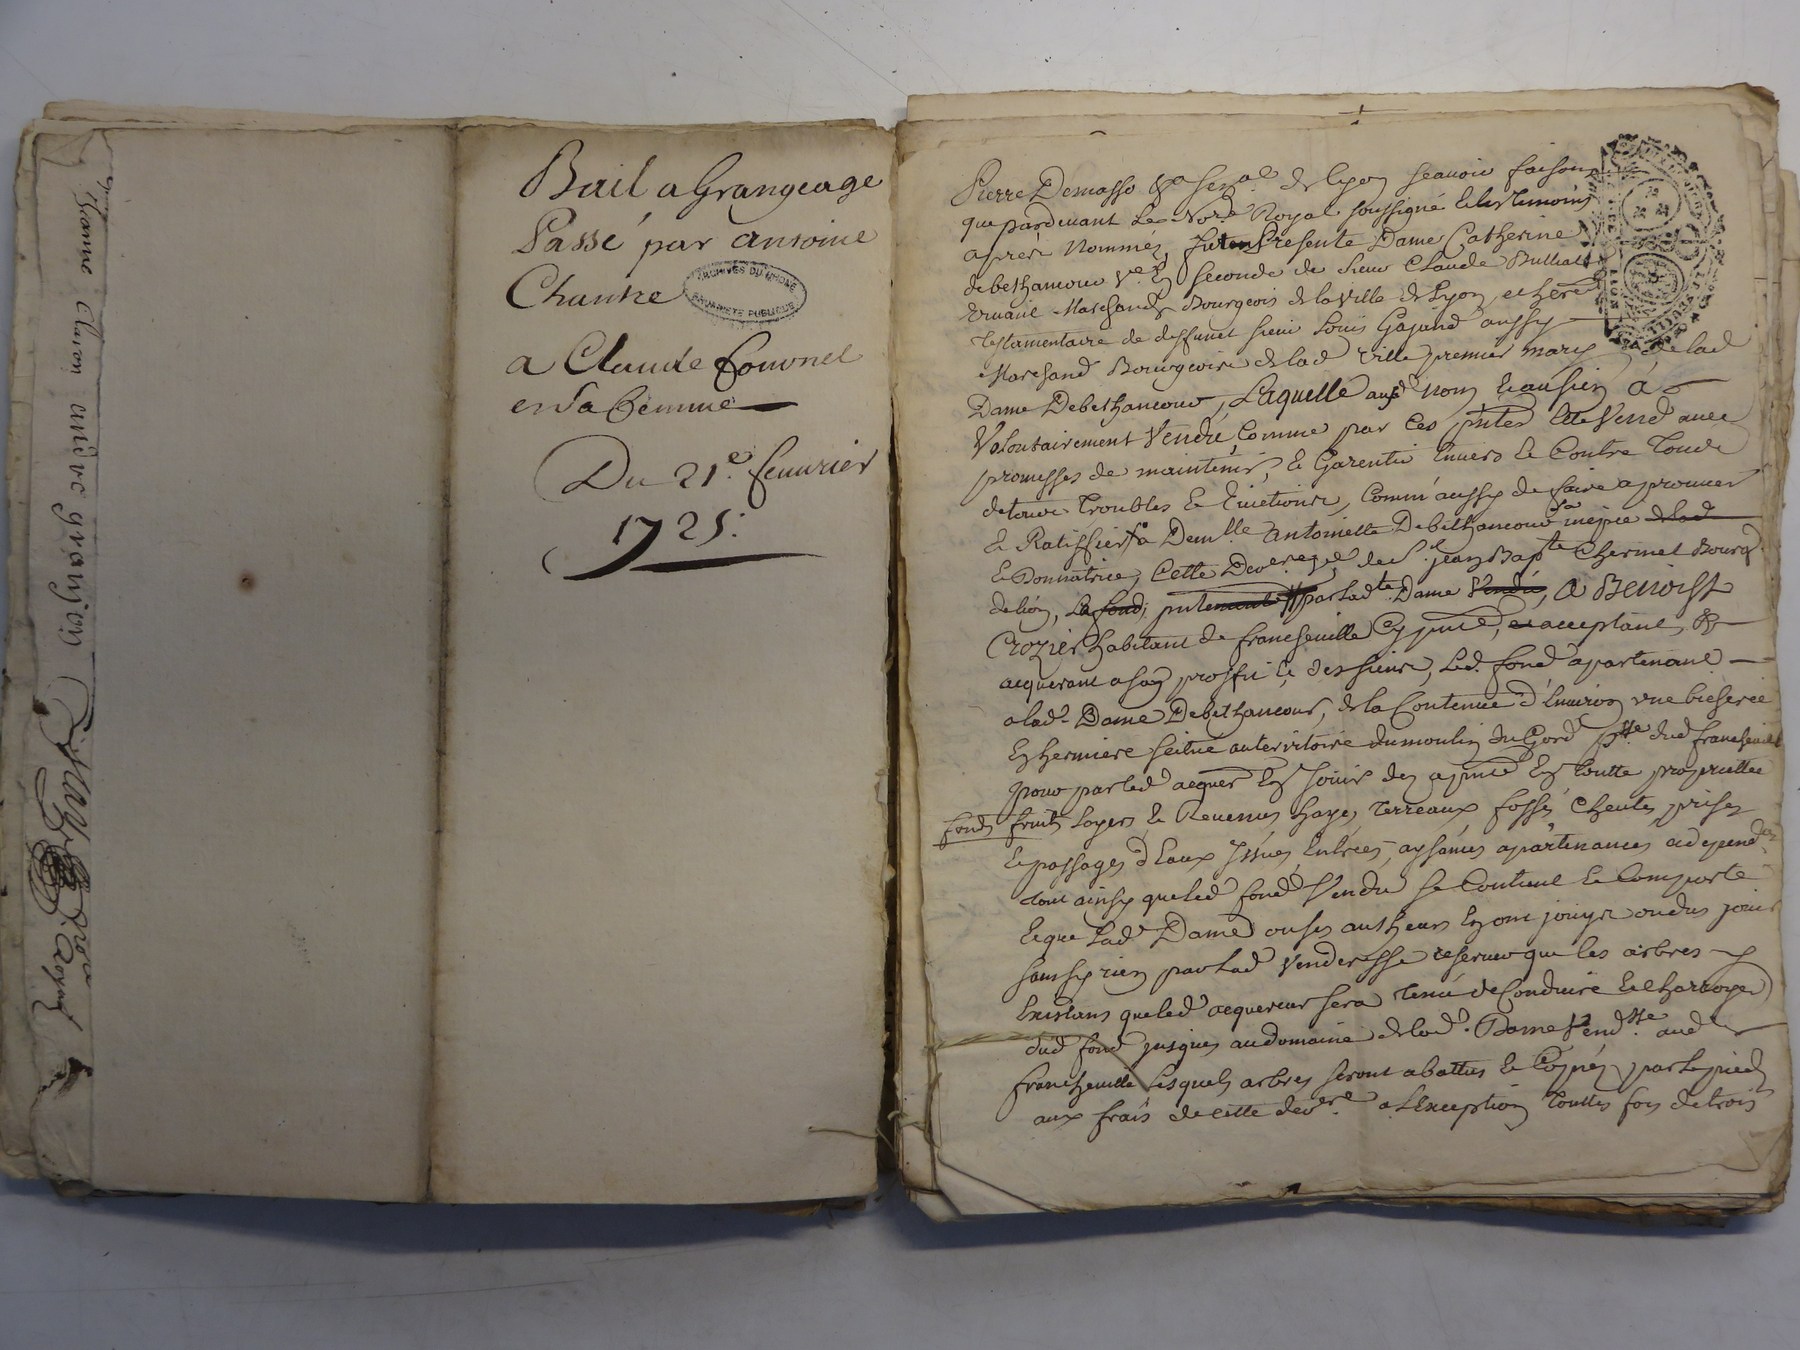 Bail a Grangeage
Passé par antoine
Channe
ARCHIVES DU RHONE
PROPRIETE PUBLIQUE
a Claude
en sa femme
Du 21e. feuvrier
1725:
Pierre Demasso de lyon scauoir faisons
que pardeuant Le Royal soussigné & les temoins
aprés Nommés fut Presente Dame Catherine
debethancour ve. seconde de sieur Claude
viuant Marchand Bourgeois de la Ville de Lyon, et
Testamentaire de deffunct sieur Louis Gajand aussy
Marchand Bourgeois de lad ville premier mary de lad
Dame Debethancour, Laquelle nom & ausien à
Volontairement Vendu, Comme par Ces pntes Elle Vend auec
promesses de maintenir, & Garentir Enuers & Contre Tous
de tous Troubles & Euictions, Comm'aussy de faire aprouuer
& Ratiffier a Demlle Antoinette Debethancour sa niepce
& Donnatrice, Cette de sr. jean Bapte Chermet Bourgs
de lion, par ladte Dame, A Benoist
Crozier habitant de francheuille Cy pnt, acceptant, &
acquerant a son proffit & des siens, Led. fond apartenant
a lad. Dame Debethancour, de la Contenue d'Enuiron vne bicherée
En hermiere scitué au territoire du moulin du Gord psse dud francheuille
pour par led acquer En jouir des a pnt En toutte proprietée
fonds fruits Loyers & Reuenus hayes Terreaux fossés Cheutes prises
& passages d'Eaux Issües Entrées, aysances apartenances
tout ainsy que led fond Vendu se Contient & Comporte
& que lad. Dame ou ses autheurs En ont jouys ou dus jouir
sans y rien par lad Venderesse reseruer que les arbres
Existans que led acquereur sera Tenu de Conduire & Charroyer
dud fond jusques au domaine de lad. Dame Vendsse aud
francheuille Lesquels arbres seront abattus & Copés par le pied
aux frais de cette derre. a L'Exception Touttes fois de trois